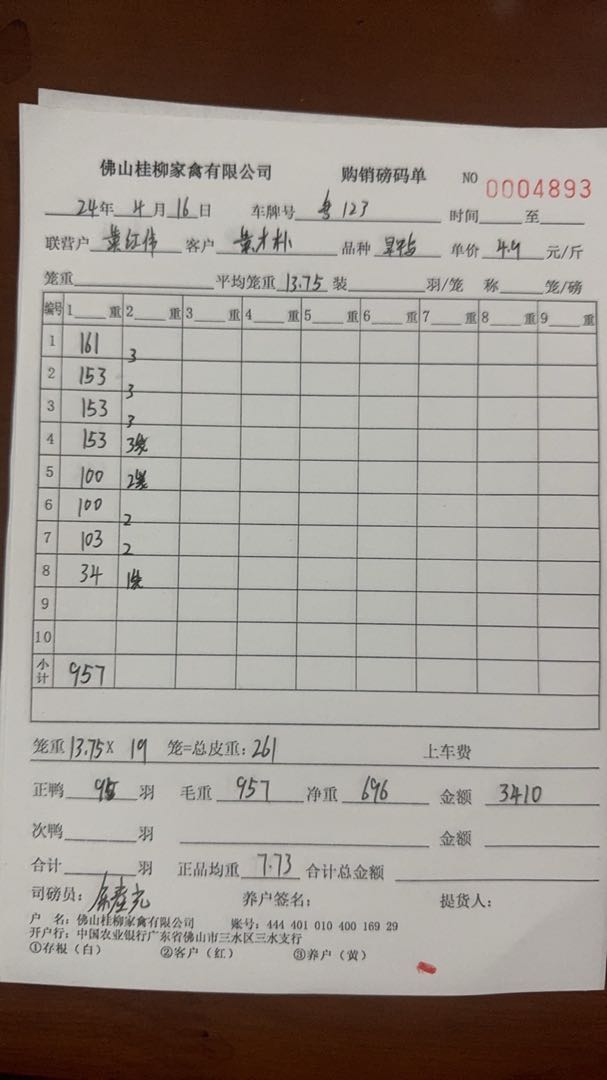 佛山桂柳家禽有限公司 购销磅码单 NO 0004893
24年 4月 16日 车牌号 粤123 时间 至
联营户 叶红伟 客户 品种 单价 4.9 元/斤
笼重 平均笼重 13.75 装 羽/笼 称 笼/磅
编号 1 重 2 重 3 重 4 重 5 重 6 重 7 重 8 重 9 重
1 161 3
2 153 3
3 153 3
4 153 3笼
5 100 2笼
6 100 2
7 103 2
8 34 1笼
9
10
小计 957
笼重 13.75 X 19 笼=总皮重: 261 上车费
正鸭 羽 毛重 957 净重 696 金额 3410
次鸭 羽 金额
合计 羽 正品均重 7.73 合计总金额
司磅员: 养户签名: 提货人:
户 名: 佛山桂柳家禽有限公司 账号: 444 401 010 400 169 29
开户行: 中国农业银行广东省佛山市三水区三水支行
①存根(白) ②客户(红) ③养户(黄)